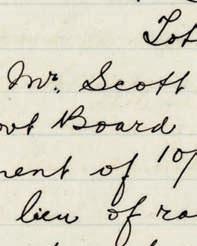 Tot
Mr. Scott
ovt Board
ment of 10/
lieu of ra